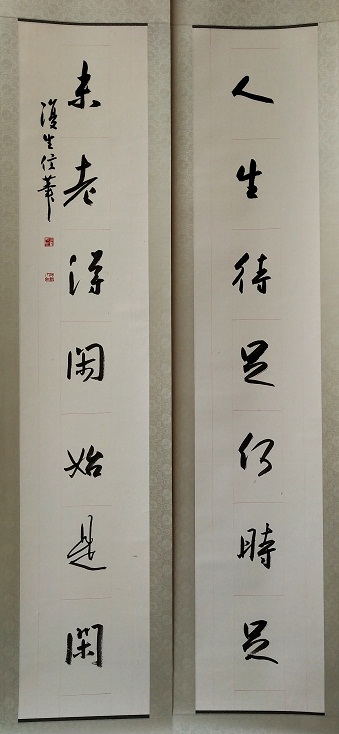 人生待足何時足
未老得閑始是閑
復生信筆